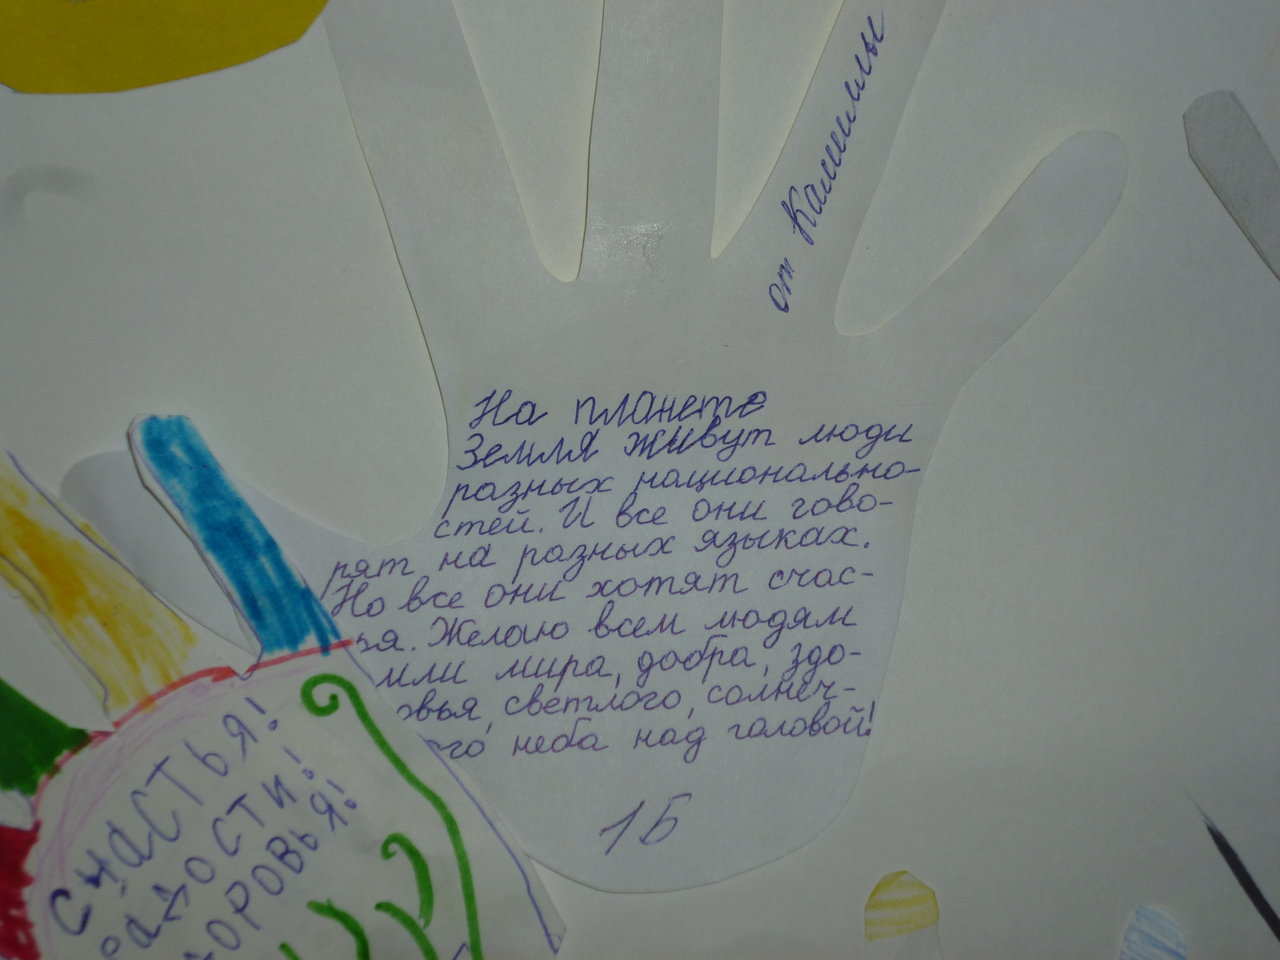 от Камиллы
На планете
Земля живут люди
разных национально-
стей. И все они гово-
рят на разных языках.
Но все они хотят счас-
ья. Желаю всем людям
мли мира, добра, здо-
овья, светлого, солнеч-
ого неба над головой!
1Б
СЧАСТЬЯ!
РАДОСТИ!
ДОРОВЬЯ!